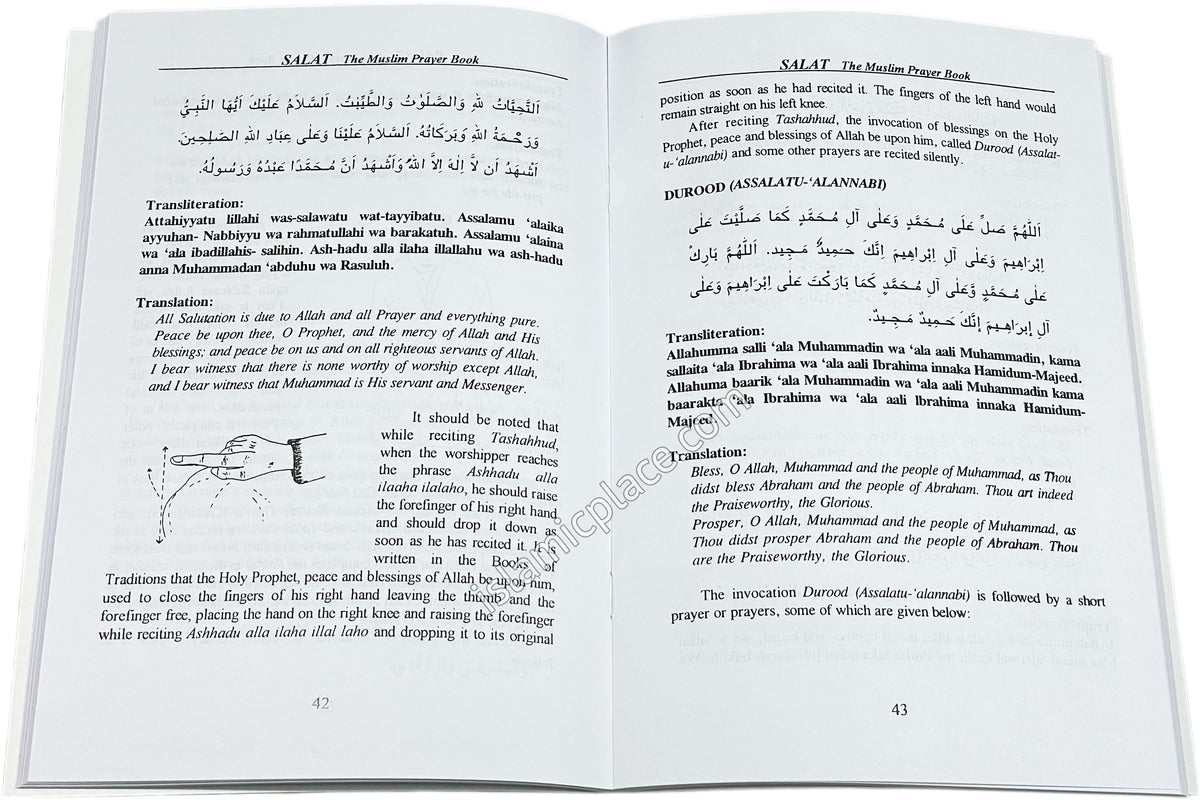 SALAT The Muslim Prayer Book
اَلتَّحِيَّاتُ لِلّٰهِ وَالصَّلَوٰتُ وَالطَّيِّبٰتُ. اَلسَّلَامُ عَلَيْكَ اَيُّهَا النَّبِيُّ
وَرَحْمَةُ اللّٰهِ وَبَرَكَاتُهُ. اَلسَّلَامُ عَلَيْنَا وَعَلٰى عِبَادِ اللّٰهِ الصّٰلِحِينَ.
اَشْهَدُ اَن لَّا اِلٰهَ اِلَّا اللّٰهُ وَاَشْهَدُ اَنَّ مُحَمَّدًا عَبْدُهُ وَرَسُولُهُ.
Transliteration:
Attahiyyatu lillahi was-salawatu wat-tayyibatu. Assalamu ‘alaika
ayyuhan- Nabbiyyu wa rahmatullahi wa barakatuh. Assalamu ‘alaina
wa ‘ala ibadillahis- salihin. Ash-hadu alla ilaha illallahu wa ash-hadu
anna Muhammadan ‘abduhu wa Rasuluh.
Translation:
All Salutation is due to Allah and all Prayer and everything pure.
Peace be upon thee, O Prophet, and the mercy of Allah and His
blessings; and peace be on us and on all righteous servants of Allah.
I bear witness that there is none worthy of worship except Allah,
and I bear witness that Muhammad is His servant and Messenger.
It should be noted that
while reciting Tashahhud,
when the worshipper reaches
the phrase Ashhadu alla
ilaaha ilalaho, he should raise
the forefinger of his right hand
and should drop it down as
soon as he has recited it. It is
written in the Books of
Traditions that the Holy Prophet, peace and blessings of Allah be upon him,
used to close the fingers of his right hand leaving the thumb and the
forefinger free, placing the hand on the right knee and raising the forefinger
while reciting Ashhadu alla ilaha illal laho and dropping it to its original
42
SALAT The Muslim Prayer Book
position as soon as he had recited it. The fingers of the left hand would
remain straight on his left knee.
After reciting Tashahhud, the invocation of blessings on the Holy
Prophet, peace and blessings of Allah be upon him, called Durood (Assalat-
u-‘alannabi) and some other prayers are recited silently.
DUROOD (ASSALATU-‘ALANNABI)
اَللّٰهُمَّ صَلِّ عَلٰى مُحَمَّدٍ وَعَلٰى آلِ مُحَمَّدٍ كَمَا صَلَّيْتَ عَلٰى
اِبْرَاهِيمَ وَعَلٰى آلِ اِبْرَاهِيمَ اِنَّكَ حَمِيدٌ مَجِيد. اَللّٰهُمَّ بَارِكْ
عَلٰى مُحَمَّدٍ وَّعَلٰى آلِ مُحَمَّدٍ كَمَا بَارَكْتَ عَلٰى اِبْرَاهِيمَ وَعَلٰى
آلِ اِبرَاهِيمَ اِنَّكَ حَمِيدٌ مَجِيدٌ.
Transliteration:
Allahumma salli ‘ala Muhammadin wa ‘ala aali Muhammadin, kama
sallaita ‘ala Ibrahima wa ‘ala aali Ibrahima innaka Hamidum-Majeed.
Allahuma baarik ‘ala Muhammadin wa ‘ala aali Muhammadin kama
baarakta ‘ala Ibrahima wa ‘ala aali Ibrahima innaka Hamidum-
Majeed.
Translation:
Bless, O Allah, Muhammad and the people of Muhammad, as Thou
didst bless Abraham and the people of Abraham. Thou art indeed
the Praiseworthy, the Glorious.
Prosper, O Allah, Muhammad and the people of Muhammad, as
Thou didst prosper Abraham and the people of Abraham. Thou
are the Praiseworthy, the Glorious.
The invocation Durood (Assalatu-‘alannabi) is followed by a short
prayer or prayers, some of which are given below:
43
islamicplace.com